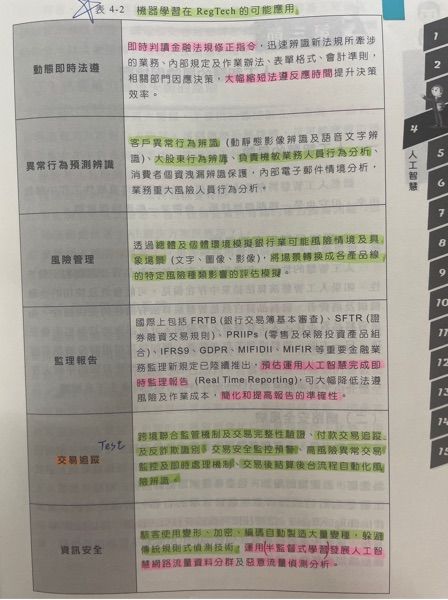 表 4-2 機器學習在 RegTech 的可能應用
動態即時法遵
即時判讀金融法規修正指令，迅速辨識新法規所牽涉
的業務、內部規定及作業辦法、表單格式、會計準則，
相關部門因應決策，大幅縮短法遵反應時間提升決策
效率。
異常行為預測辨識
客戶異常行為辨識（動靜態影像辨識及語音文字辨
識）、大股東行為辨識、負責機敏業務人員行為分析、
消費者個資洩漏辨識保護，內部電子郵件情境分析，
業務重大風險人員行為分析。
風險管理
透過總體及個體環境模擬銀行業可能風險情境及具
象場景（文字、圖像、影像），將場景轉換成各產品線
的特定風險種類影響的評估模擬。
監理報告
國際上包括 FRTB (銀行交易簿基本審查)、SFTR (證
券融資交易規則)、PRIIPs (零售及保險投資產品組
合)、IFRS9、GDPR、MIFIDII、MIFIR 等重要金融業
務監理新規定已陸續推出，預估運用人工智慧完成即
時監理報告 (Real Time Reporting)，可大幅降低法遵
風險及作業成本，簡化和提高報告的準確性。
Test
交易追蹤
跨境聯合監管機制及交易完整性驗證、付款交易追蹤
及反詐欺識別、交易安全監控預警、高風險異常交易
監控及即時處理機制、交易後結算後台流程自動化風
險辨識。
資訊安全
駭客使用變形、加密、編碼自動製造大量變種，躲避
傳統規則式偵測技術。運用(半監督式學習)發展人工智
慧網路流量資料分群及惡意流量偵測分析。
1
2
3
4
人工智慧
5
6
7
8
9
10
11
12
13
14
15